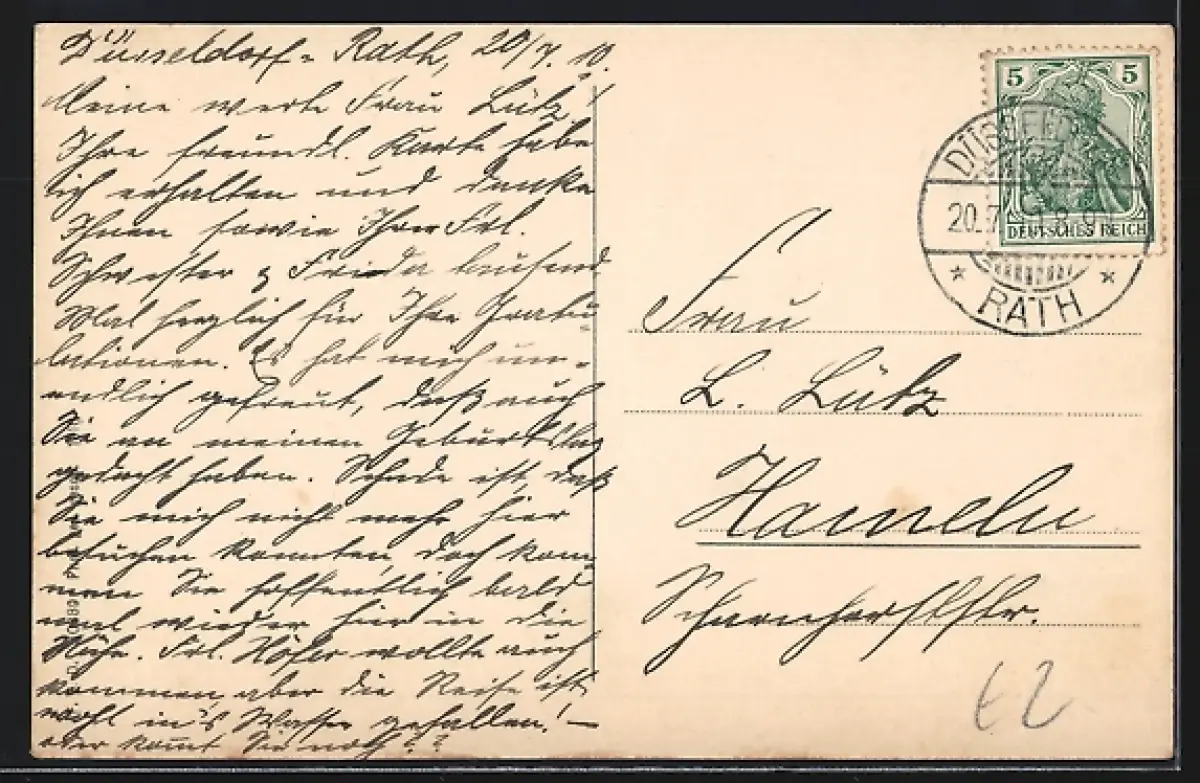 Düsseldorf-Rath, 20/7. 10.
Meine werte Frau Lütz!
Ihre freundl. Karte habe
ich erhalten und danke
Ihnen sowie Ihrer Frl.
Schwester & Frieda tausend
Mal herzlich für Ihre Gratu-
lationen. Es hat mich un-
endlich gefreut, daß auch
Sie an meinen Geburtstag
gedacht haben. Schade ist, daß
Sie mich nicht mehr hier
besuchen konnten, doch kom-
men Sie hoffentlich bald
mal wieder hier in die
Nähe. Frl. Höfer wollte auch
kommen, aber die Reise ist
wohl in's Wasser gefallen! –
oder kommt Sie noch??
5 5
DEUTSCHES REICH
20.7
* RATH *
Frau
L. Lütz
Hameln
Scharnhorststr.